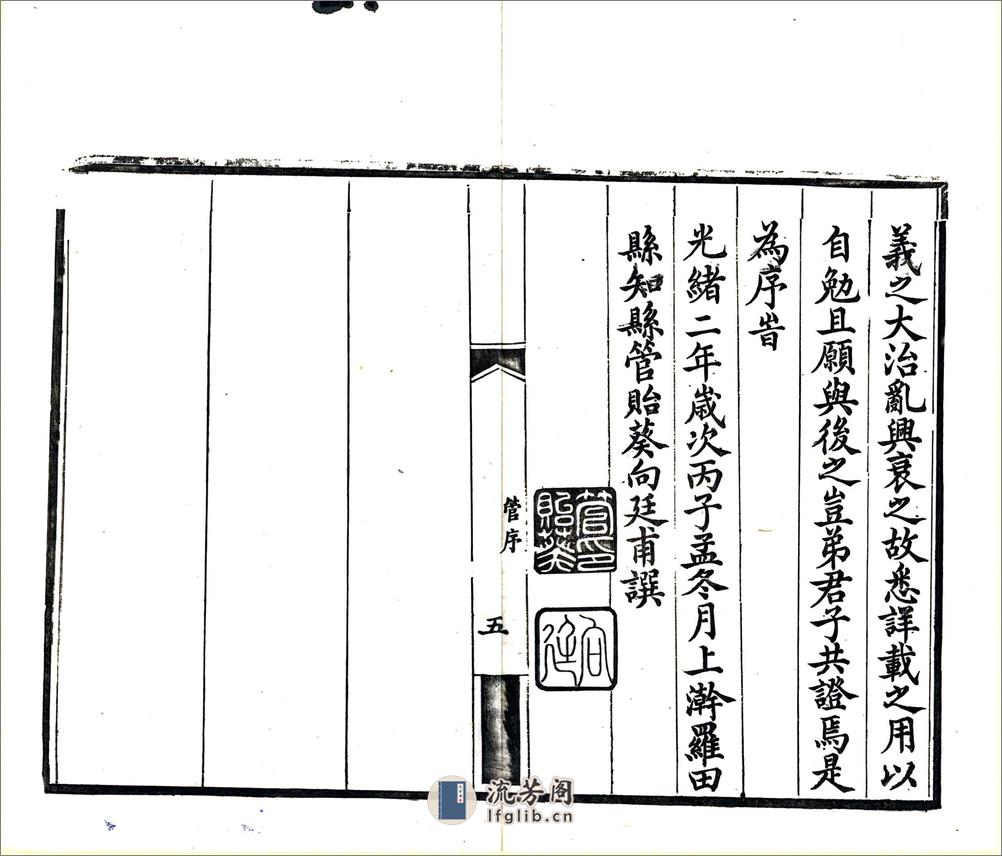 義之大治亂興衰之故悉詳載之用以
自勉且願與後之豈弟君子共證焉是
為序旹
光緒二年歲次丙子孟冬月上澣羅田
縣知縣管貽葵向廷甫譔
管貽葵印
向廷
管序
五
流芳阁
lfglib.cn